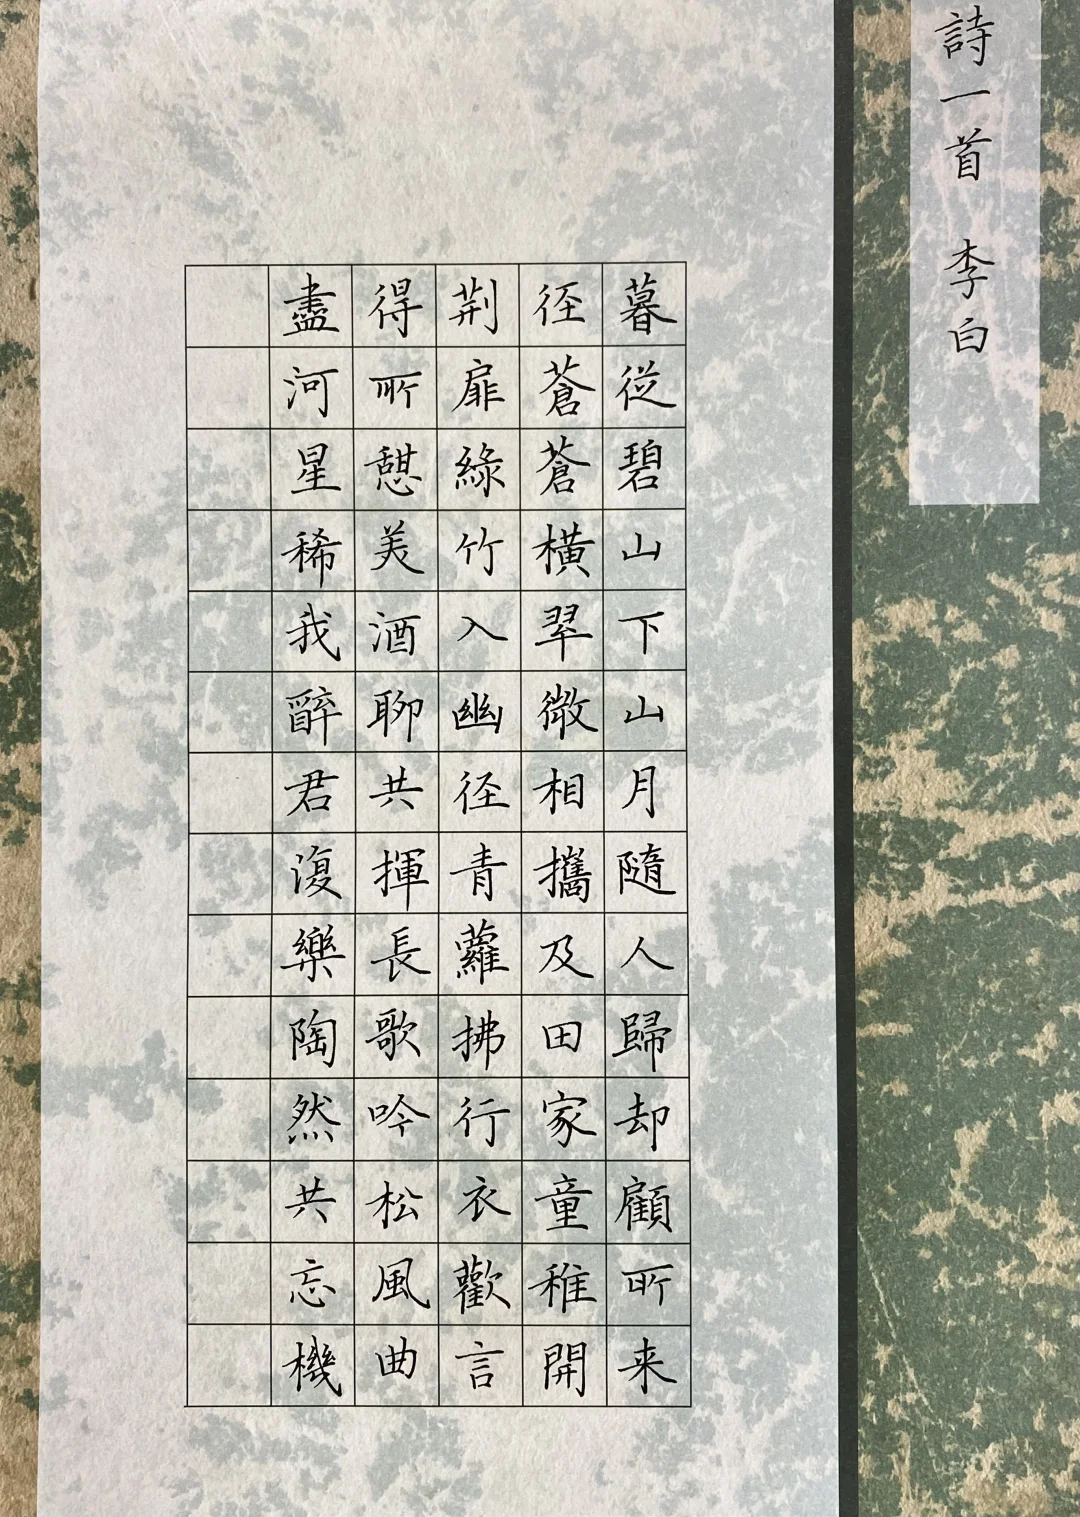 詩一首 李白
暮從碧山下山月隨人歸却顧所来
徑蒼蒼橫翠微相攜及田家童稚開
荆扉綠竹入幽徑青蘿拂行衣歡言
得所憩美酒聊共揮長歌吟松風曲
盡河星稀我醉君復樂陶然共忘機